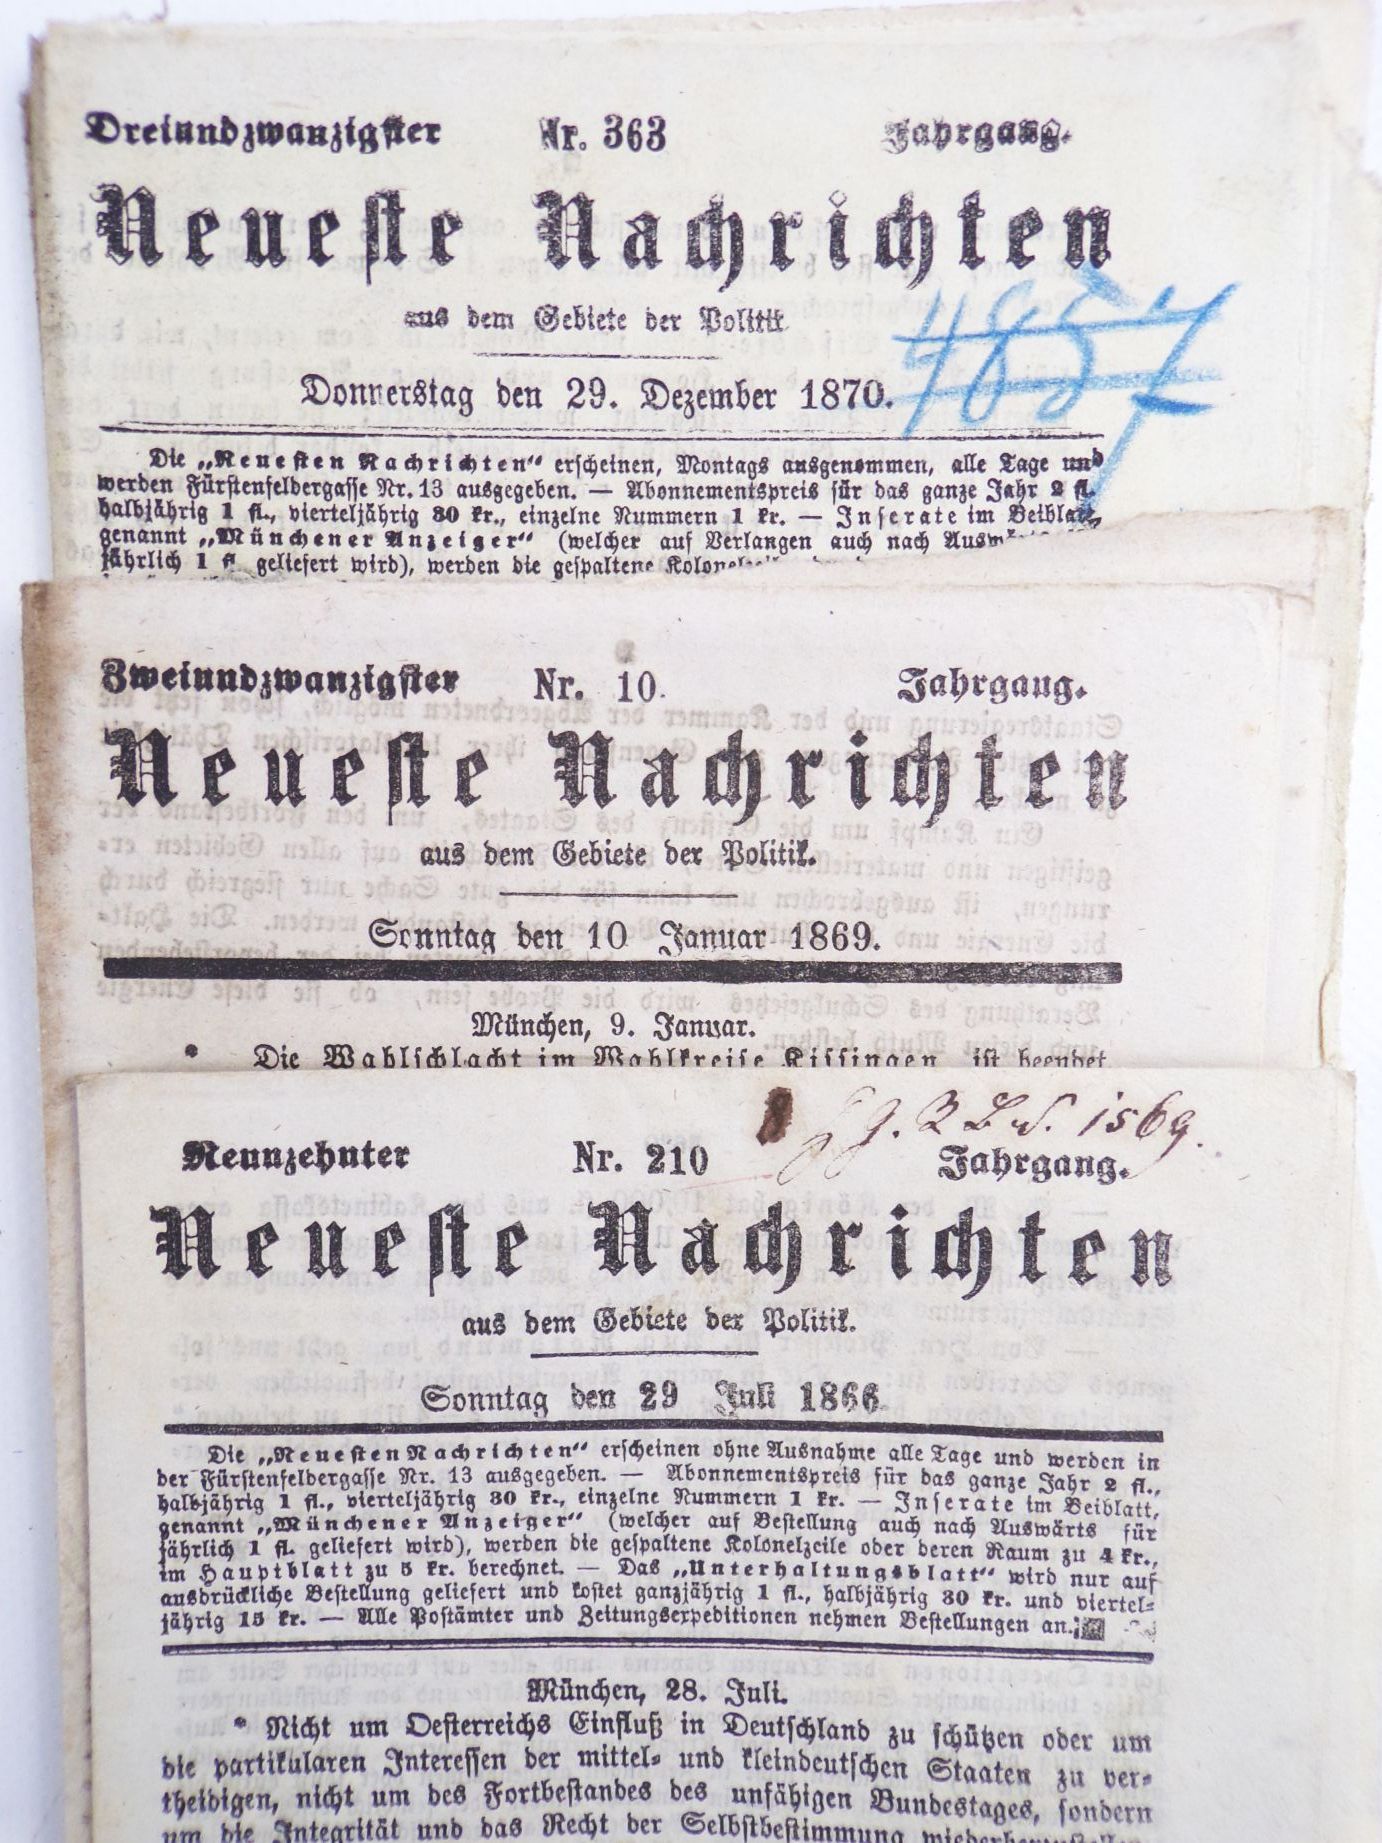 Dreiundzwanzigster Nr. 363 Jahrgang.
Neueste Nachrichten
aus dem Gebiete der Politik
4857
Donnerstag den 29. Dezember 1870.
Die „Neuesten Nachrichten“ erscheinen, Montags ausgenommen, alle Tage und
werden Fürstenfeldergasse Nr. 13 ausgegeben. — Abonnementspreis für das ganze Jahr 2 fl.
halbjährig 1 fl., vierteljährig 30 kr., einzelne Nummern 1 kr. — Inserate im Beiblatt,
genannt „Münchener Anzeiger“ (welcher auf Verlangen auch nach
jährlich 1 fl geliefert wird), werden die gespaltene
Zweiundzwanzigster Nr. 10. Jahrgang.
Neueste Nachrichten
aus dem Gebiete der Politik.
Sonntag den 10 Januar 1869.
München, 9. Januar.
* Die Wahlschlacht im Wahlkreise Kissingen ist beendet.
1569.
Neunzehnter Nr. 210 Jahrgang.
Neueste Nachrichten
aus dem Gebiete der Politik.
Sonntag den 29 Juli 1866.
Die „Neuesten Nachrichten“ erscheinen ohne Ausnahme alle Tage und werden in
der Fürstenfeldergasse Nr. 13 ausgegeben. — Abonnementspreis für das ganze Jahr 2 fl.,
halbjährig 1 fl., vierteljährig 30 kr., einzelne Nummern 1 kr. — Inserate im Beiblatt,
genannt „Münchener Anzeiger“ (welcher auf Bestellung auch nach Auswärts für
jährlich 1 fl. geliefert wird), werden die gespaltene Kolonelzeile oder deren Raum zu 4 kr.,
im Hauptblatt zu 5 kr. berechnet. — Das „Unterhaltungsblatt“ wird nur auf
ausdrückliche Bestellung geliefert und kostet ganzjährig 1 fl., halbjährig 30 kr. und viertel-
jährig 15 kr. — Alle Postämter und Zeitungsexpeditionen nehmen Bestellungen an.
München, 28. Juli.
* Nicht um Oesterreichs Einfluß in Deutschland zu schützen oder um
die partikularen Interessen der mittel- und kleindeutschen Staaten zu ver-
theidigen, nicht um des Fortbestandes des unfähigen Bundestages, sondern
um die Integrität und das Recht der Selbstbestimmung